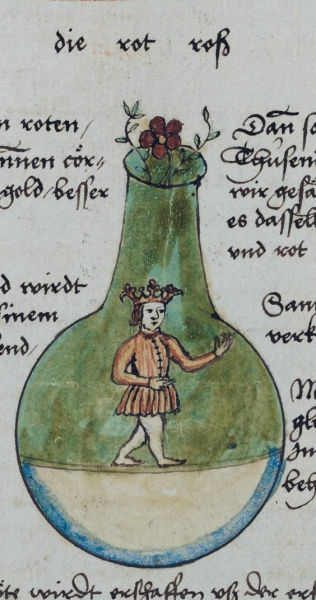 die rot roß
n roten
nnen cör-
gold besser
d wirdt
sinem
end
Dan so
Thusent
wir gesä
es dassel
vnd rot
Sam
verk
gl
In
beh
wirdt erschaffen vß der ers